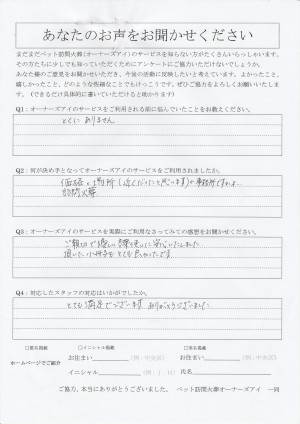 あなたのお声をお聞かせください
まだまだペット訪問火葬（オーナーズアイ）のサービスを知らない方がたくさんいらっしゃいます。
その方たちに少しでも知っていただくためにアンケートにご協力いただけないでしょうか。
あなた様のご意見をお聞かせいただき、今後の活動に反映したいと考えています。よかったこと、
嬉しかったこと、どのような些細なことでもけっこうです。ぜひご協力をよろしくお願いいたしま
す。（できるだけ具体的に書いていただけると助かります）
Q1：オーナーズアイのサービスをご利用される前に悩んでいたことをお教えください。
とくに ありません
Q2：何が決め手となってオーナーズアイのサービスをご利用されましたか。
価格と場所（近くだった
訪問火葬
Q3：オーナーズアイのサービスを実際にご利用なさってみての感想をお聞かせください。
ご親切で優しい
頂いた
とても良かったです。
Q4：対応したスタッフの対応はいかがでしたか。
とても満足でございます ありがとうございました
□匿名掲載 □イニシャル掲載 □実名掲載
ホームページでご紹介
お住まい （例：中央区） お住まい （例：中央区）
イニシャル 氏名
ご協力、本当にありがとうございました。 ペット訪問火葬オーナーズアイ 一同